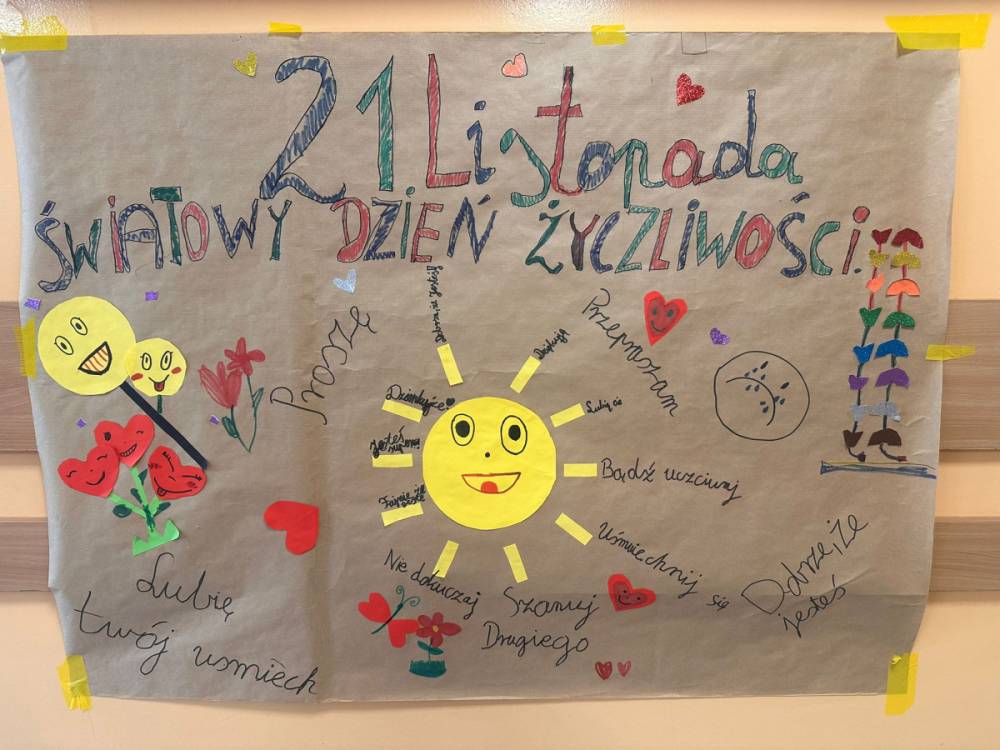 21 Listopada
ŚWIATOWY DZIEŃ ŻYCZLIWOŚCI.
Proszę
Dziękuję
Przepraszam
Lubię cię
Bądź uczciwy
Uśmiechnij się
Dobrze, że
jesteś
Szanuj
Drugiego
Nie dokuczaj
Fajnie że
jesteś
Jesteś
Lubię
twój usmiech